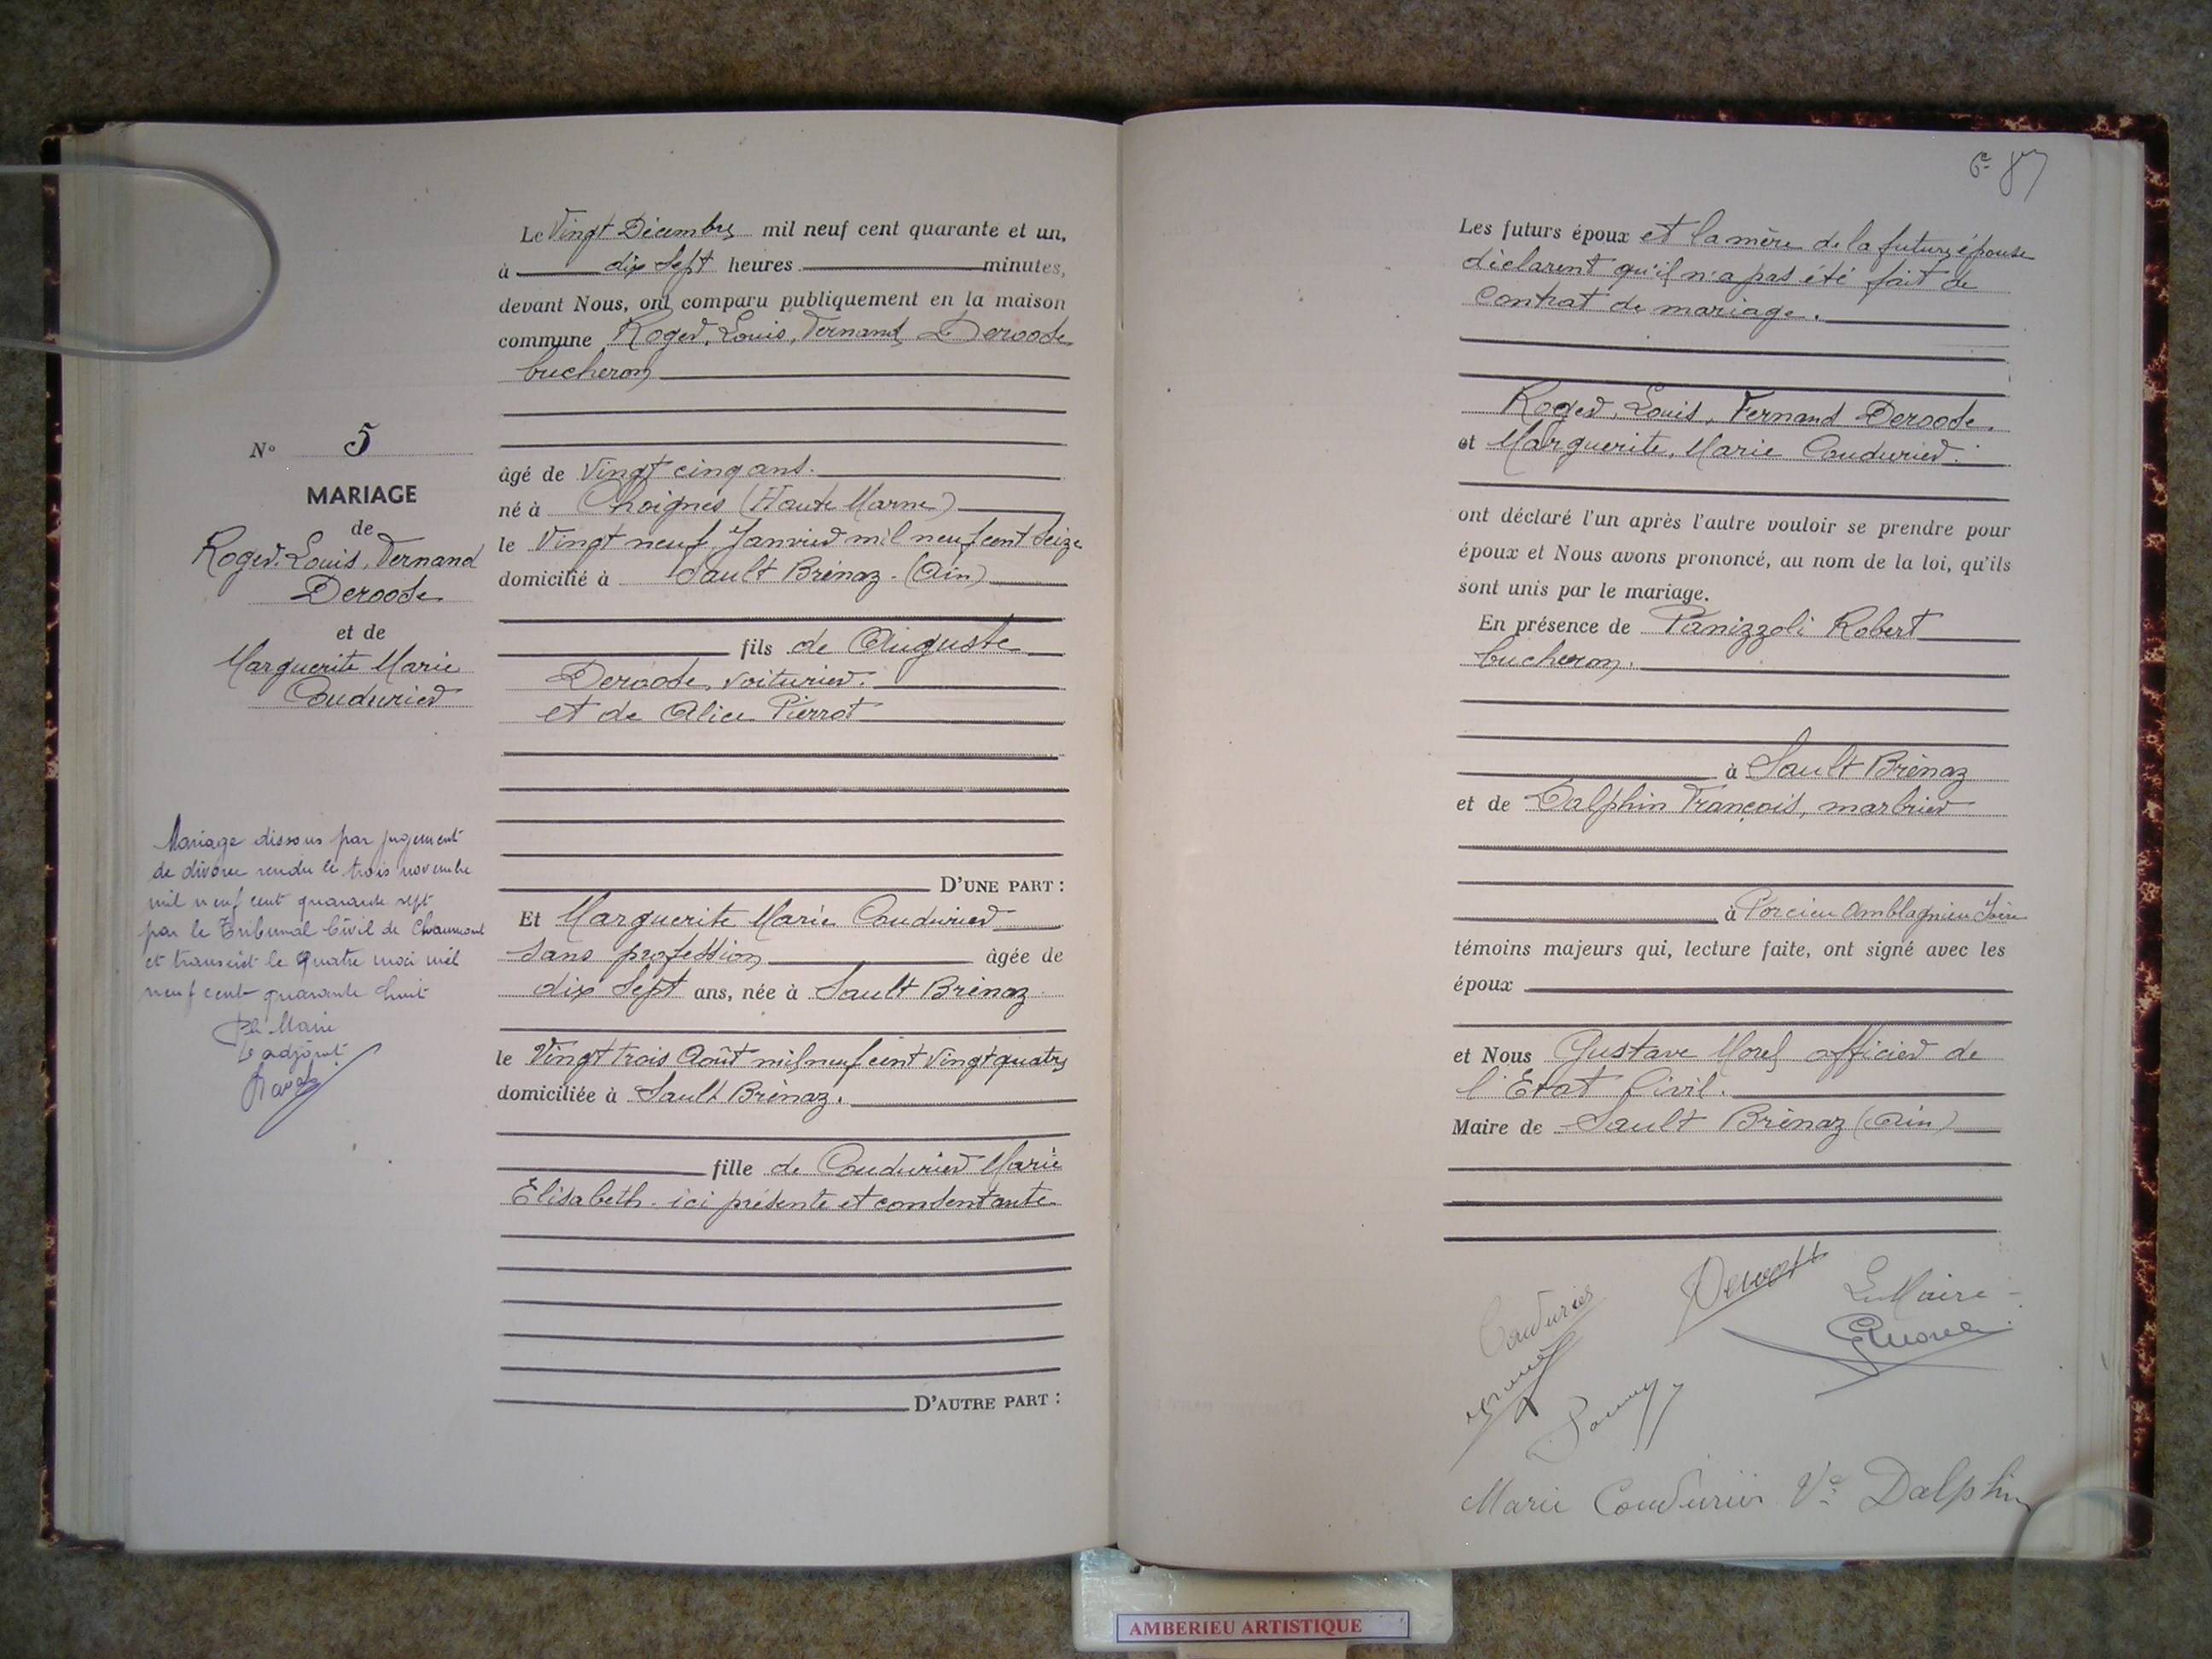 Le Vingt Décembre mil neuf cent quarante et un,
à dix sept heures minutes,
devant Nous, ont comparu publiquement en la maison
commune Roger, Louis, Fernand Deroode
bucheron
âgé de vingt cinq ans.
né à Choignes (Haute Marne)
le Vingt neuf Janvier mil neuf cent seize
domicilié à Sault Brénaz. (Ain)
fils de Auguste
Deroode, voiturier.
et de Alice Pierrot
D'UNE PART :
Et Marguerite Marie Coudurier
sans profession âgée de
dix sept ans, née à Sault Brénaz
le Vingt trois Août mil neuf cent vingt quatre
domiciliée à Sault Brénaz.
fille de Coudurier Marie
Elisabeth. ici présente et consentante
D'AUTRE PART :
N° 5
MARIAGE
de
Roger. Louis, Fernand
Deroode
et de
Marguerite Marie
Coudurier
Mariage dissous par jugement
de divorce rendu le trois novembre
mil neuf cent quarante sept
par le Tribunal Civil de Chaumont
et transcrit le quatre mai mil
neuf cent quarante huit
Le Maire
L'adjoint
6e 87
Les futurs époux et la mère de la future épouse
déclarent qu'il n'a pas été fait de
contrat de mariage.
Roger, Louis, Fernand Deroode.
et Marguerite, Marie Coudurier.
ont déclaré l'un après l'autre vouloir se prendre pour
époux et Nous avons prononcé, au nom de la loi, qu'ils
sont unis par le mariage.
En présence de Panizzoli Robert
bucheron.
à Sault Brénaz
et de Dalphin François, marbrier
à Porcieu Amblagnieu Isère
témoins majeurs qui, lecture faite, ont signé avec les
époux
et Nous Gustave Morel officier de
l'Etat Civil.
Maire de Sault Brénaz (Ain)
Coudurier
Le Maire
GMorel
Marie Coudurier Ve Dalphin
AMBERIEU ARTISTIQUE